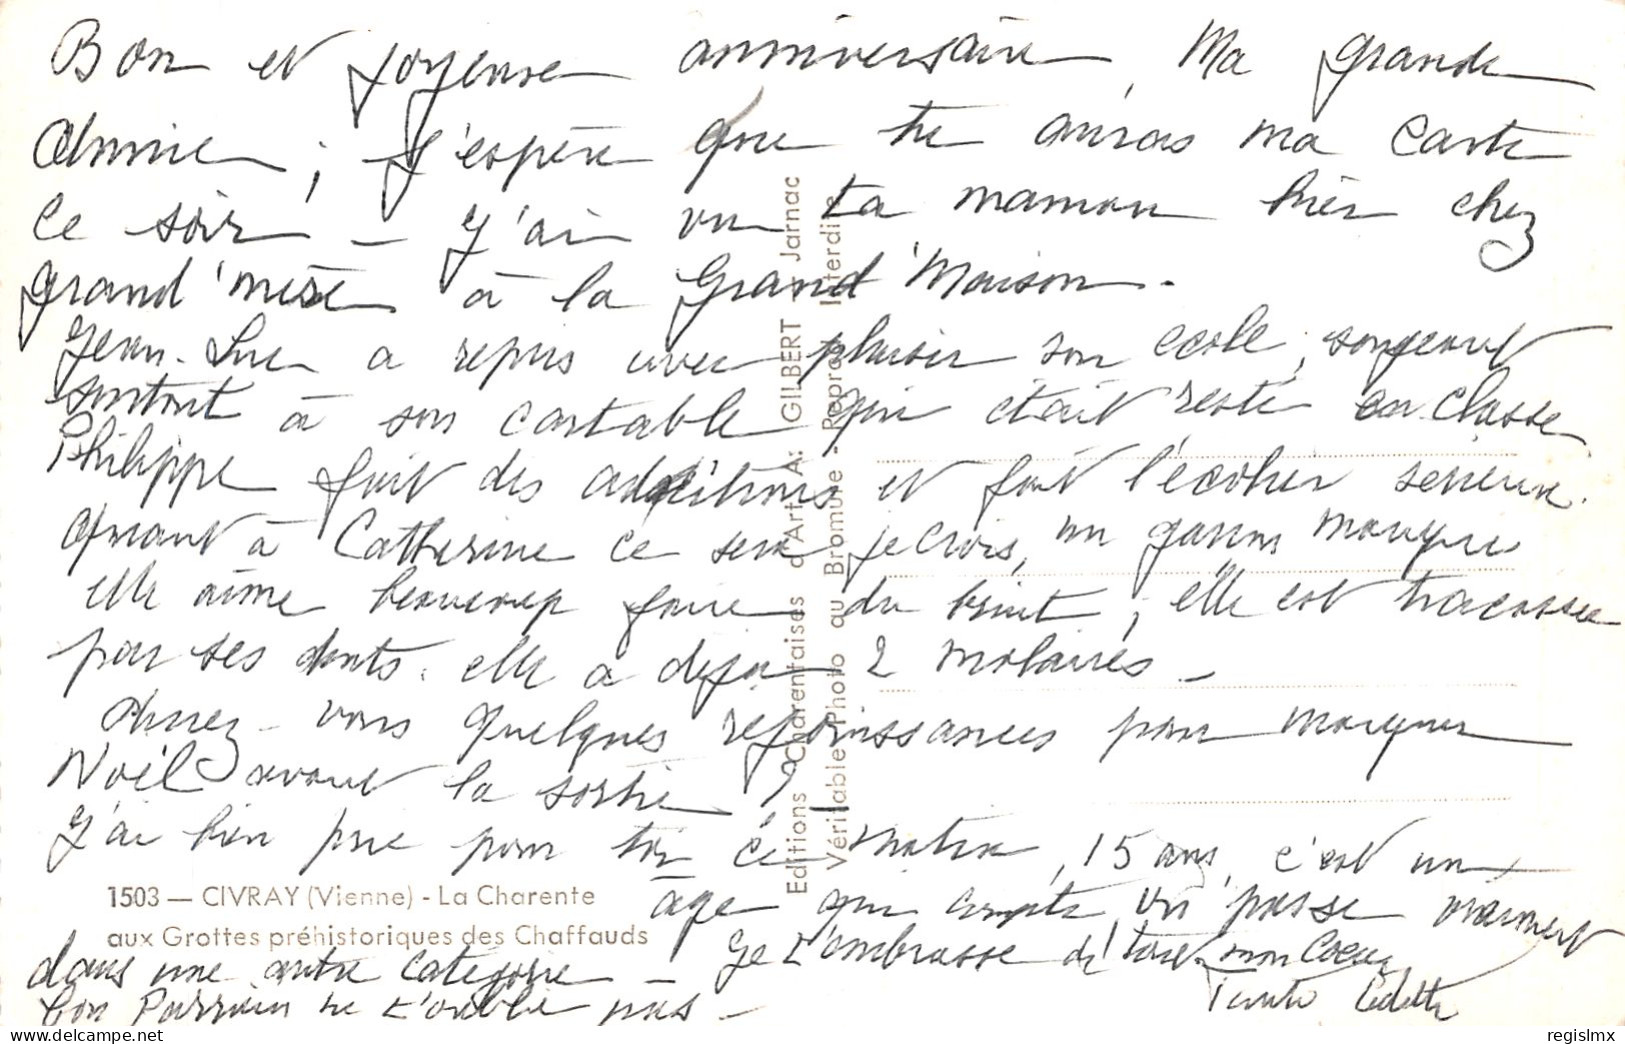 Bon et joyeuse anniversaire, Ma grande
Annie ; J'espère que tu auras ma carte
ce soir - J'ai vu ta maman hier chez
grand'mère à la Grand'Maison.
Jean-Luc a repris avec plaisir son école, songeant
surtout à son cartable qui était resté en classe
Philippe fait des additions et fait l'écolier sérieux.
Quant à Catherine ce sera je crois, un garçon manqué
elle aime beaucoup faire du bruit, elle est tracassée
par ses dents. elle a déjà 2 molaires -
Aurez-vous quelques réjouissances pour marquer
Noël avant la sortie ?
J'ai bien prié pour toi ce matin, 15 ans, c'est un
âge qui compte, on passe vraiment
dans une autre catégorie - Je t'embrasse de tout mon Coeur
Ton Parrain ne t'oublie pas - Tante
1503 — CIVRAY (Vienne) - La Charente
aux Grottes préhistoriques des Chaffauds
Editions Charentaises d'Art A. GILBERT - Jarnac
Véritable Photo au Bromure - Reprod. Interdite
regislmx